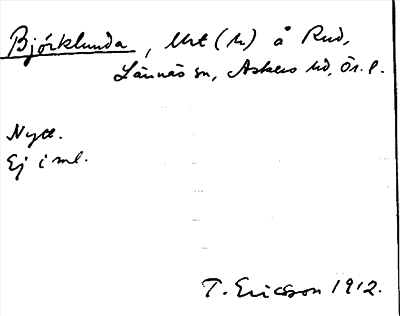 Björklunda, Urt (h) å Rud,
Lännäs sn, Askers hd, Ör. l.
Nytt.
Ej i ml.
T. Ericsson 1912.